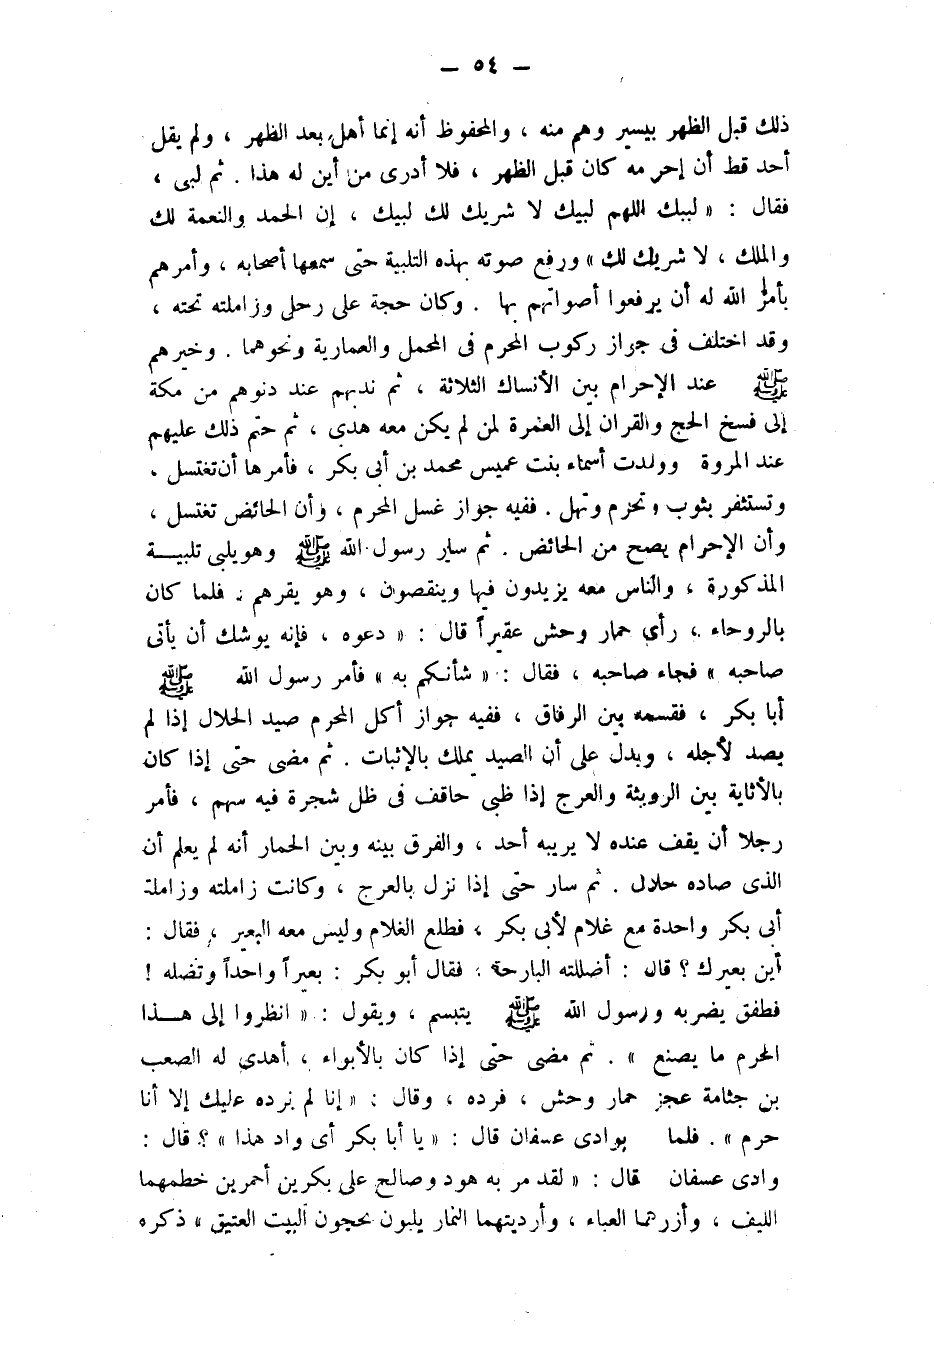 — ٥٤ —
ذلك قبل الظهر بيسير وهم منه ، والمحفوظ أنه إنما أهل بعد الظهر ، ولم يقل
أحد قط أن إحرمه كان قبل الظهر ، فلا أدرى من أين له هذا . ثم لبى ،
فقال : « لبيك اللهم لبيك لا شريك لك لبيك ، إن الحمد والنعمة لك
والملك ، لا شريك لك » ورفع صوته بهذه التلبية حتى سمعها أصحابه ، وأمرهم
بأمر الله له أن يرفعوا أصواتهم بها . وكان حجة على رحل وزاملته تحته ،
وقد اختلف فى جواز ركوب المحرم فى المحمل والعمارية ونحوهما . وخيرهم
ﷺ عند الإحرام بين الأنساك الثلاثة ، ثم ندبهم عند دنوهم من مكة
إلى فسخ الحج والقران إلى العمرة لمن لم يكن معه هدى ، ثم حتم ذلك عليهم
عند المروة وولدت أسماء بنت عميس محمد بن أبى بكر ، فأمرها أن تغتسل .
وتستثفر بثوب وتحزم وتهل . ففيه جواز غسل المحرم ، وأن الحائض تغتسل ،
وأن الإحرام يصح من الحائض . ثم سار رسول الله ﷺ وهو يلبى تلبيــة
المذكورة ، والناس معه يزيدون فيها وينقصون ، وهو يقرهم . فلما كان
بالروحاء ، رأى حمار وحش عقيراً قال : « دعوه ، فإنه يوشك أن يأتى
صاحبه » فجاء صاحبه ، فقال : « شأنكم به » فأمر رسول الله ﷺ
أبا بكر ، فقسمه بين الرفاق ، ففيه جواز أكل المحرم صيد الحلال إذا لم
يصد لأجله ، ويدل على أن الصيد يملك بالإثبات . ثم مضى حتى إذا كان
بالأثاية بين الرويثة والعرج إذا ظبى حاقف فى ظل شجرة فيه سهم ، فأمر
رجلا أن يقف عنده لا يريبه أحد ، والفرق بينه وبين الحمار أنه لم يعلم أن
الذى صاده حلال . ثم سار حتى إذا نزل بالعرج ، وكانت زاملته وزاملة
أبى بكر واحدة مع غلام لأبى بكر ، فطلع الغلام وليس معه البعير ، فقال :
أين بعيرك ؟ قال : أضللته البارحة . فقال أبو بكر : بعيراً واحداً وتضله !
فطفق يضربه ورسول الله ﷺ يتبسم ، ويقول : « انظروا إلى هــذا
المحرم ما يصنع » . ثم مضى حتى إذا كان بالأبواء ، أهدى له الصعب
بن جثامة عجز حمار وحش ، فرده ، وقال : « إنا لم نرده عليك إلا أنا
حرم » . فلما بوادى عسفان قال : « يا أبا بكر أى واد هذا » ؟ قال :
وادى عسفان قال : « لقد مر به هود وصالح على بكرين أحمرين خطمهما
الليف ، وأزرهما العباء ، وأرديتهما النمار يلبون يحجون البيت العتيق » ذكره